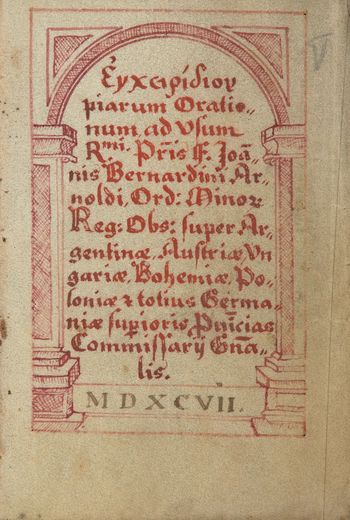 Ἐγχειρίδιον
piarum Oratio-
num, ad Vsum
Rmi. Pr̃is F. Joã-
nis Bernardini Ar-
noldi, Ord: Minoꝝ
Reg: Obs: super Ar-
gentinæ, Austriæ Vn
gariæ, Bohemiæ, Po-
loniæ & totius Germa-
niæ sup̱ioris Pũcias
Commissarij Gñã-
lis.
M D X C VII.